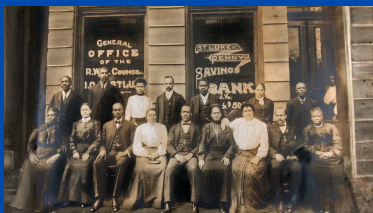 GENERAL
OFFICE
OF THE
R.W.G. COUNCIL
I.O. ST LUKE
ST. LUKE
PENNY
SAVINGS
BANK